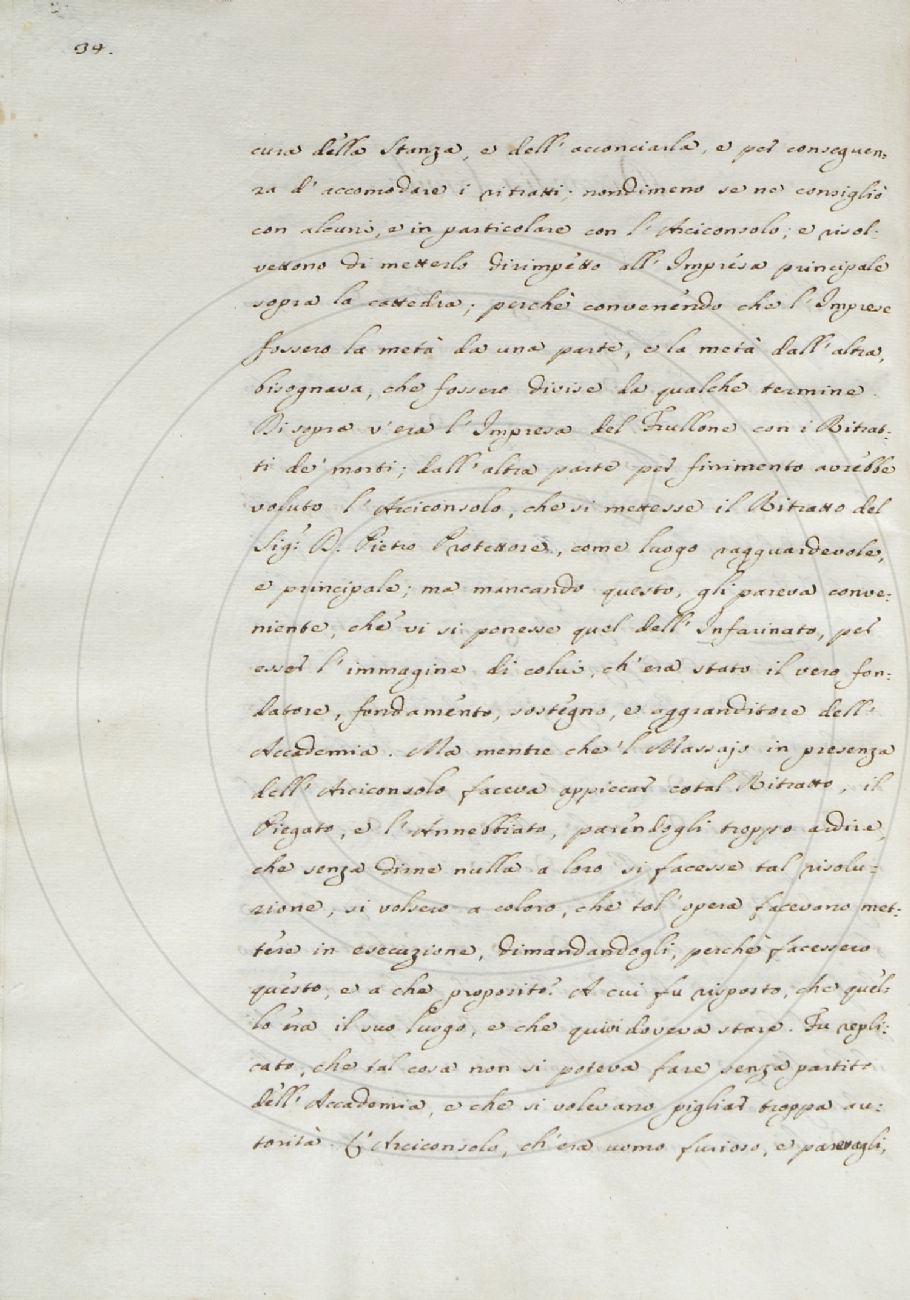 34.
cura della Stanza, e dell' acconciarla, e per conseguen:
za d' accomodare i ritratti; nondimeno se ne consigliò
con alcuni, e in particolare con l' Arciconsolo; e risol:
vettono di metterlo dirimpetto all' Impresa principale
sopra la cattedra; perchè convenendo che l' Imprese
fossero la metà da una parte, e la metà dall' altra,
bisognava, che fossero divise da qualche termine.
Di sopra v' era l' Impresa del Frullone con i Ritrat:
ti de' morti; dall' altra parte per finimento avrebbe
voluto l' Arciconsolo, che si mettesse il Ritratto del
Sig: D. Pietro Protettore, come luogo ragguardevole,
e principale; ma mancando questo, gli pareva conve:
niente, che vi si ponesse quel dell' Infarinato, per
esser l' immagine di colui, ch' era stato il vero fon:
datore, fondamento, sostegno, e aggranditore dell'
Accademia. Ma mentre che 'l Massajo in presenza
dell' Arciconsolo faceva appiccar cotal Ritratto, il
Piegato, e l' Annebbiato, parendogli troppo ardire,
che senza dirne nulla a loro si facesse tal risolu:
zione, si volsero a coloro, che tal' opera facevano met:
tere in esecuzione, dimandandogli, perchè facessero
questo, e a che proposito? A cui fu risposto, che quel:
lo era il suo luogo, e che quivi doveva stare. Fu repli:
cato, che tal cosa non si poteva fare senza partito
dell' Accademia, e che si volevano pigliar troppa au:
torità. L' Arciconsolo, ch' era uomo furioso, e parevagli,